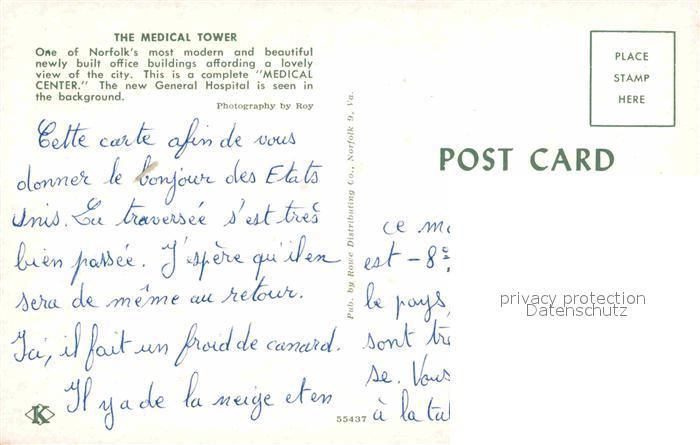 THE MEDICAL TOWER
One of Norfolk's most modern and beautiful
newly built office buildings affording a lovely
view of the city. This is a complete "MEDICAL
CENTER." The new General Hospital is seen in
the background.
Photography by Roy
Cette carte afin de vous
donner le bonjour des Etats
Unis. La traversée s'est très
bien passée. J'espère qu'il en
sera de même au retour.
Ici, il fait un froid de canard.
Il y a de la neige et en
55437
K
Pub. by Rowe Distributing Co., Norfolk 9, Va.
PLACE
STAMP
HERE
POST CARD
ce
est -8°
le pays,
sont
se. Vous
à la
privacy protection
Datenschutz